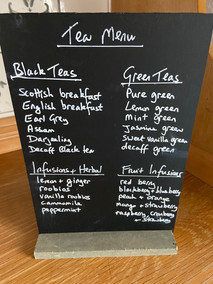 Tea Menu
Black Teas
Scottish breakfast
English breakfast
Earl Grey
Assam
Darjeeling
Decaff Black tea
Green Teas
Pure green
Lemon green
Mint green
Jasmine green
sweet vanilla green
decaff green
Infusions + Herbal
lemon + ginger
rooibos
vanilla rooibos
cammomile
peppermint
Fruit Infusions
red berry
blackberry + blueberry
peach + orange
mango + strawberry
raspberry, cranberry
+ strawberry